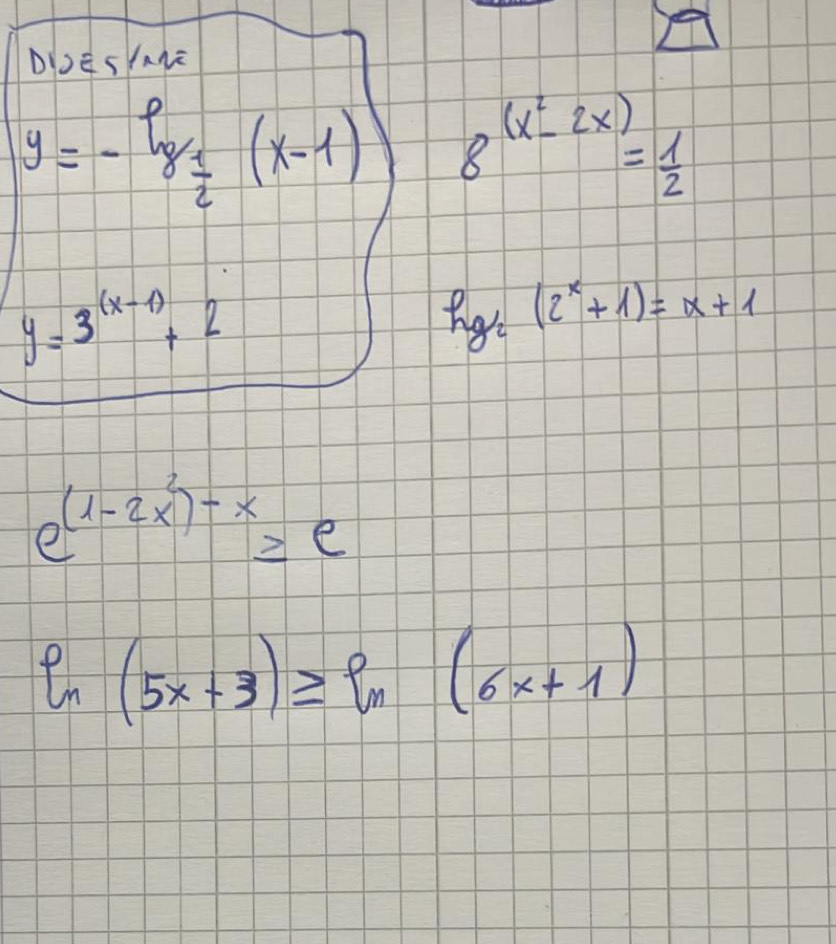 DISEGNARE
y = - log_{1/2} (x-1)
8^{(x²-2x)} = 1/2
y = 3^{(x-1)} + 2
log₂ (2^x + 1) = x + 1
e^{(1-2x²)-x} ≥ e
ln (5x+3) ≥ ln (6x+1)